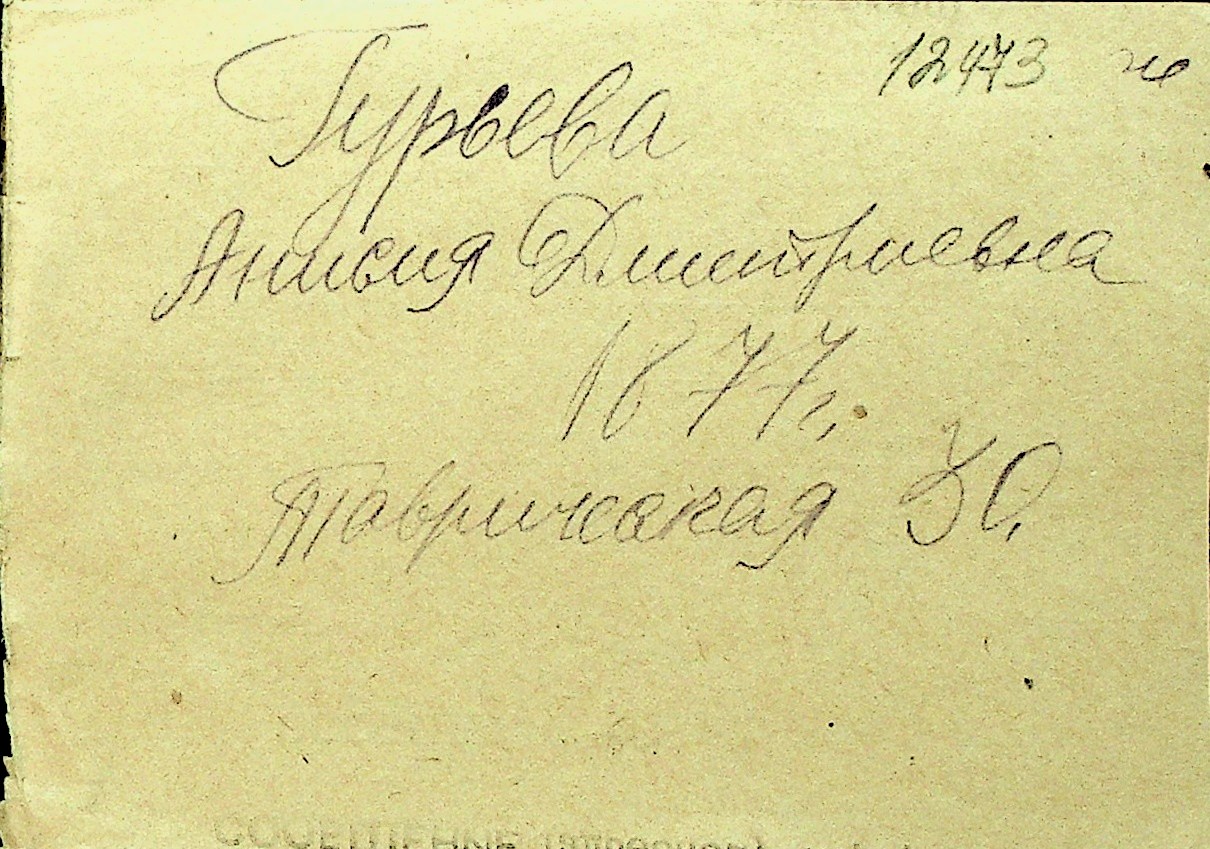 12473 ж
Гурьева
Анисия Дмитриевна
1877 г.
Таврическая 30.